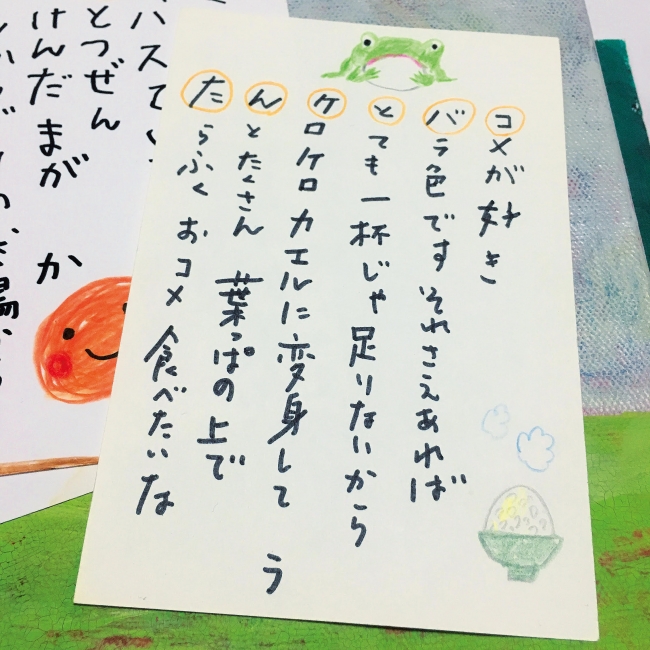 コメが好き
バラ色です それさえあれば
とても一杯じゃ足りないから
ケロケロカエルに変身して う
んとたくさん 葉っぱの上で
たらふく おコメ 食べたいな
ハスて
とつぜん
けんだまが か